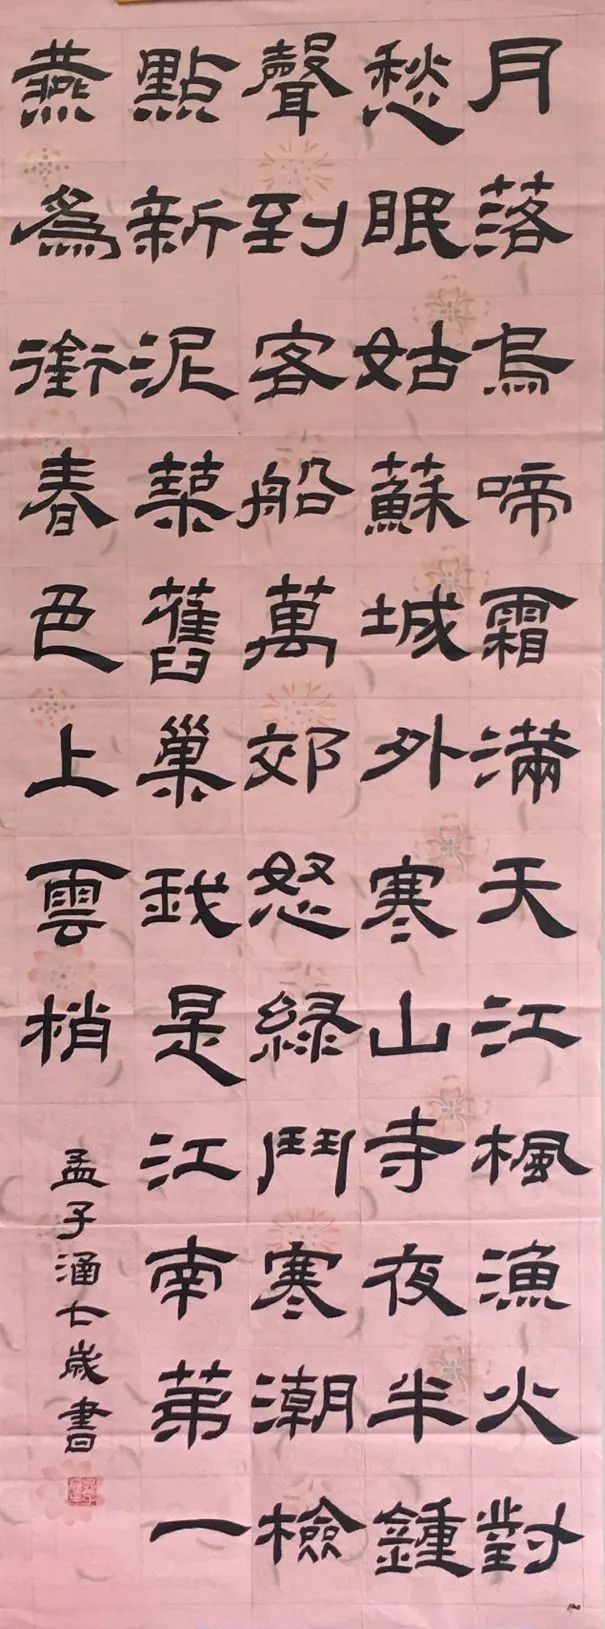 月落烏啼霜滿天江楓漁火對
愁眠姑蘇城外寒山寺夜半鍾
聲到客船萬郊怒綠鬥寒潮檢
點新泥築舊巢我是江南第一
燕爲銜春色上雲梢
孟子涵七歲書